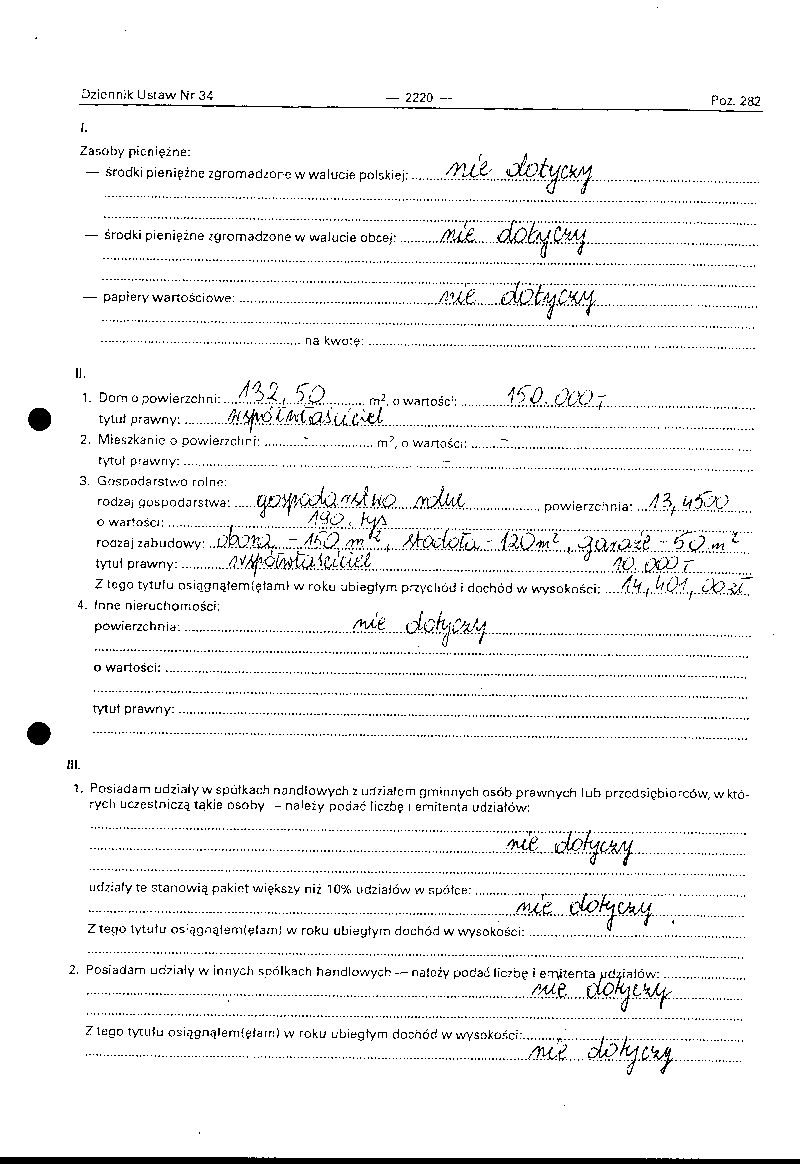 Dziennik Ustaw Nr 34 — 2220 — Poz. 282
I.
Zasoby pieniężne:
— środki pieniężne zgromadzone w walucie polskiej: nie dotyczy
— środki pieniężne zgromadzone w walucie obcej: nie dotyczy
— papiery wartościowe: nie dotyczy
na kwotę:
II.
1. Dom o powierzchni: 132,50 m², o wartości: 150.000,-
tytuł prawny: współwłaściciel
2. Mieszkanie o powierzchni: - m², o wartości: -
tytuł prawny: -
3. Gospodarstwo rolne:
rodzaj gospodarstwa: gospodarstwo rolne powierzchnia: 13,4500
o wartości: 190. tys
rodzaj zabudowy: obora - 150 m², stodoła - 120 m², garaże - 50 m²
tytuł prawny: współwłaściciel 10.000,-
Z tego tytułu osiągnąłem(ęłam) w roku ubiegłym przychód i dochód w wysokości: 14,401,00 zł
4. Inne nieruchomości:
powierzchnia: nie dotyczy
o wartości:
tytuł prawny:
III.
1. Posiadam udziały w spółkach handlowych z udziałem gminnych osób prawnych lub przedsiębiorców, w któ-
rych uczestniczą takie osoby – należy podać liczbę i emitenta udziałów:
nie dotyczy
udziały te stanowią pakiet większy niż 10% udziałów w spółce:
nie dotyczy
Z tego tytułu osiągnąłem(ęłam) w roku ubiegłym dochód w wysokości:
2. Posiadam udziały w innych spółkach handlowych — należy podać liczbę i emitenta udziałów:
nie dotyczy
Z tego tytułu osiągnąłem(ęłam) w roku ubiegłym dochód w wysokości:
nie dotyczy